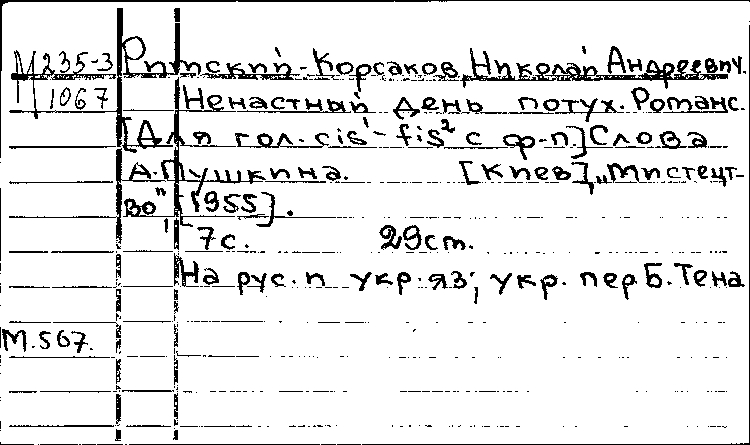 М 235-3 Римский-Корсаков, Николай Андреевич.
1067 Ненастный день потух. Романс.
[Для гол. cis¹-fis² с ф-п.] Слова
А. Пушкина. [Киев], „Мистецт-
во", [1955].
7 с. 29 cm.
На рус. и укр. яз; укр. пер Б. Тена
М.567.